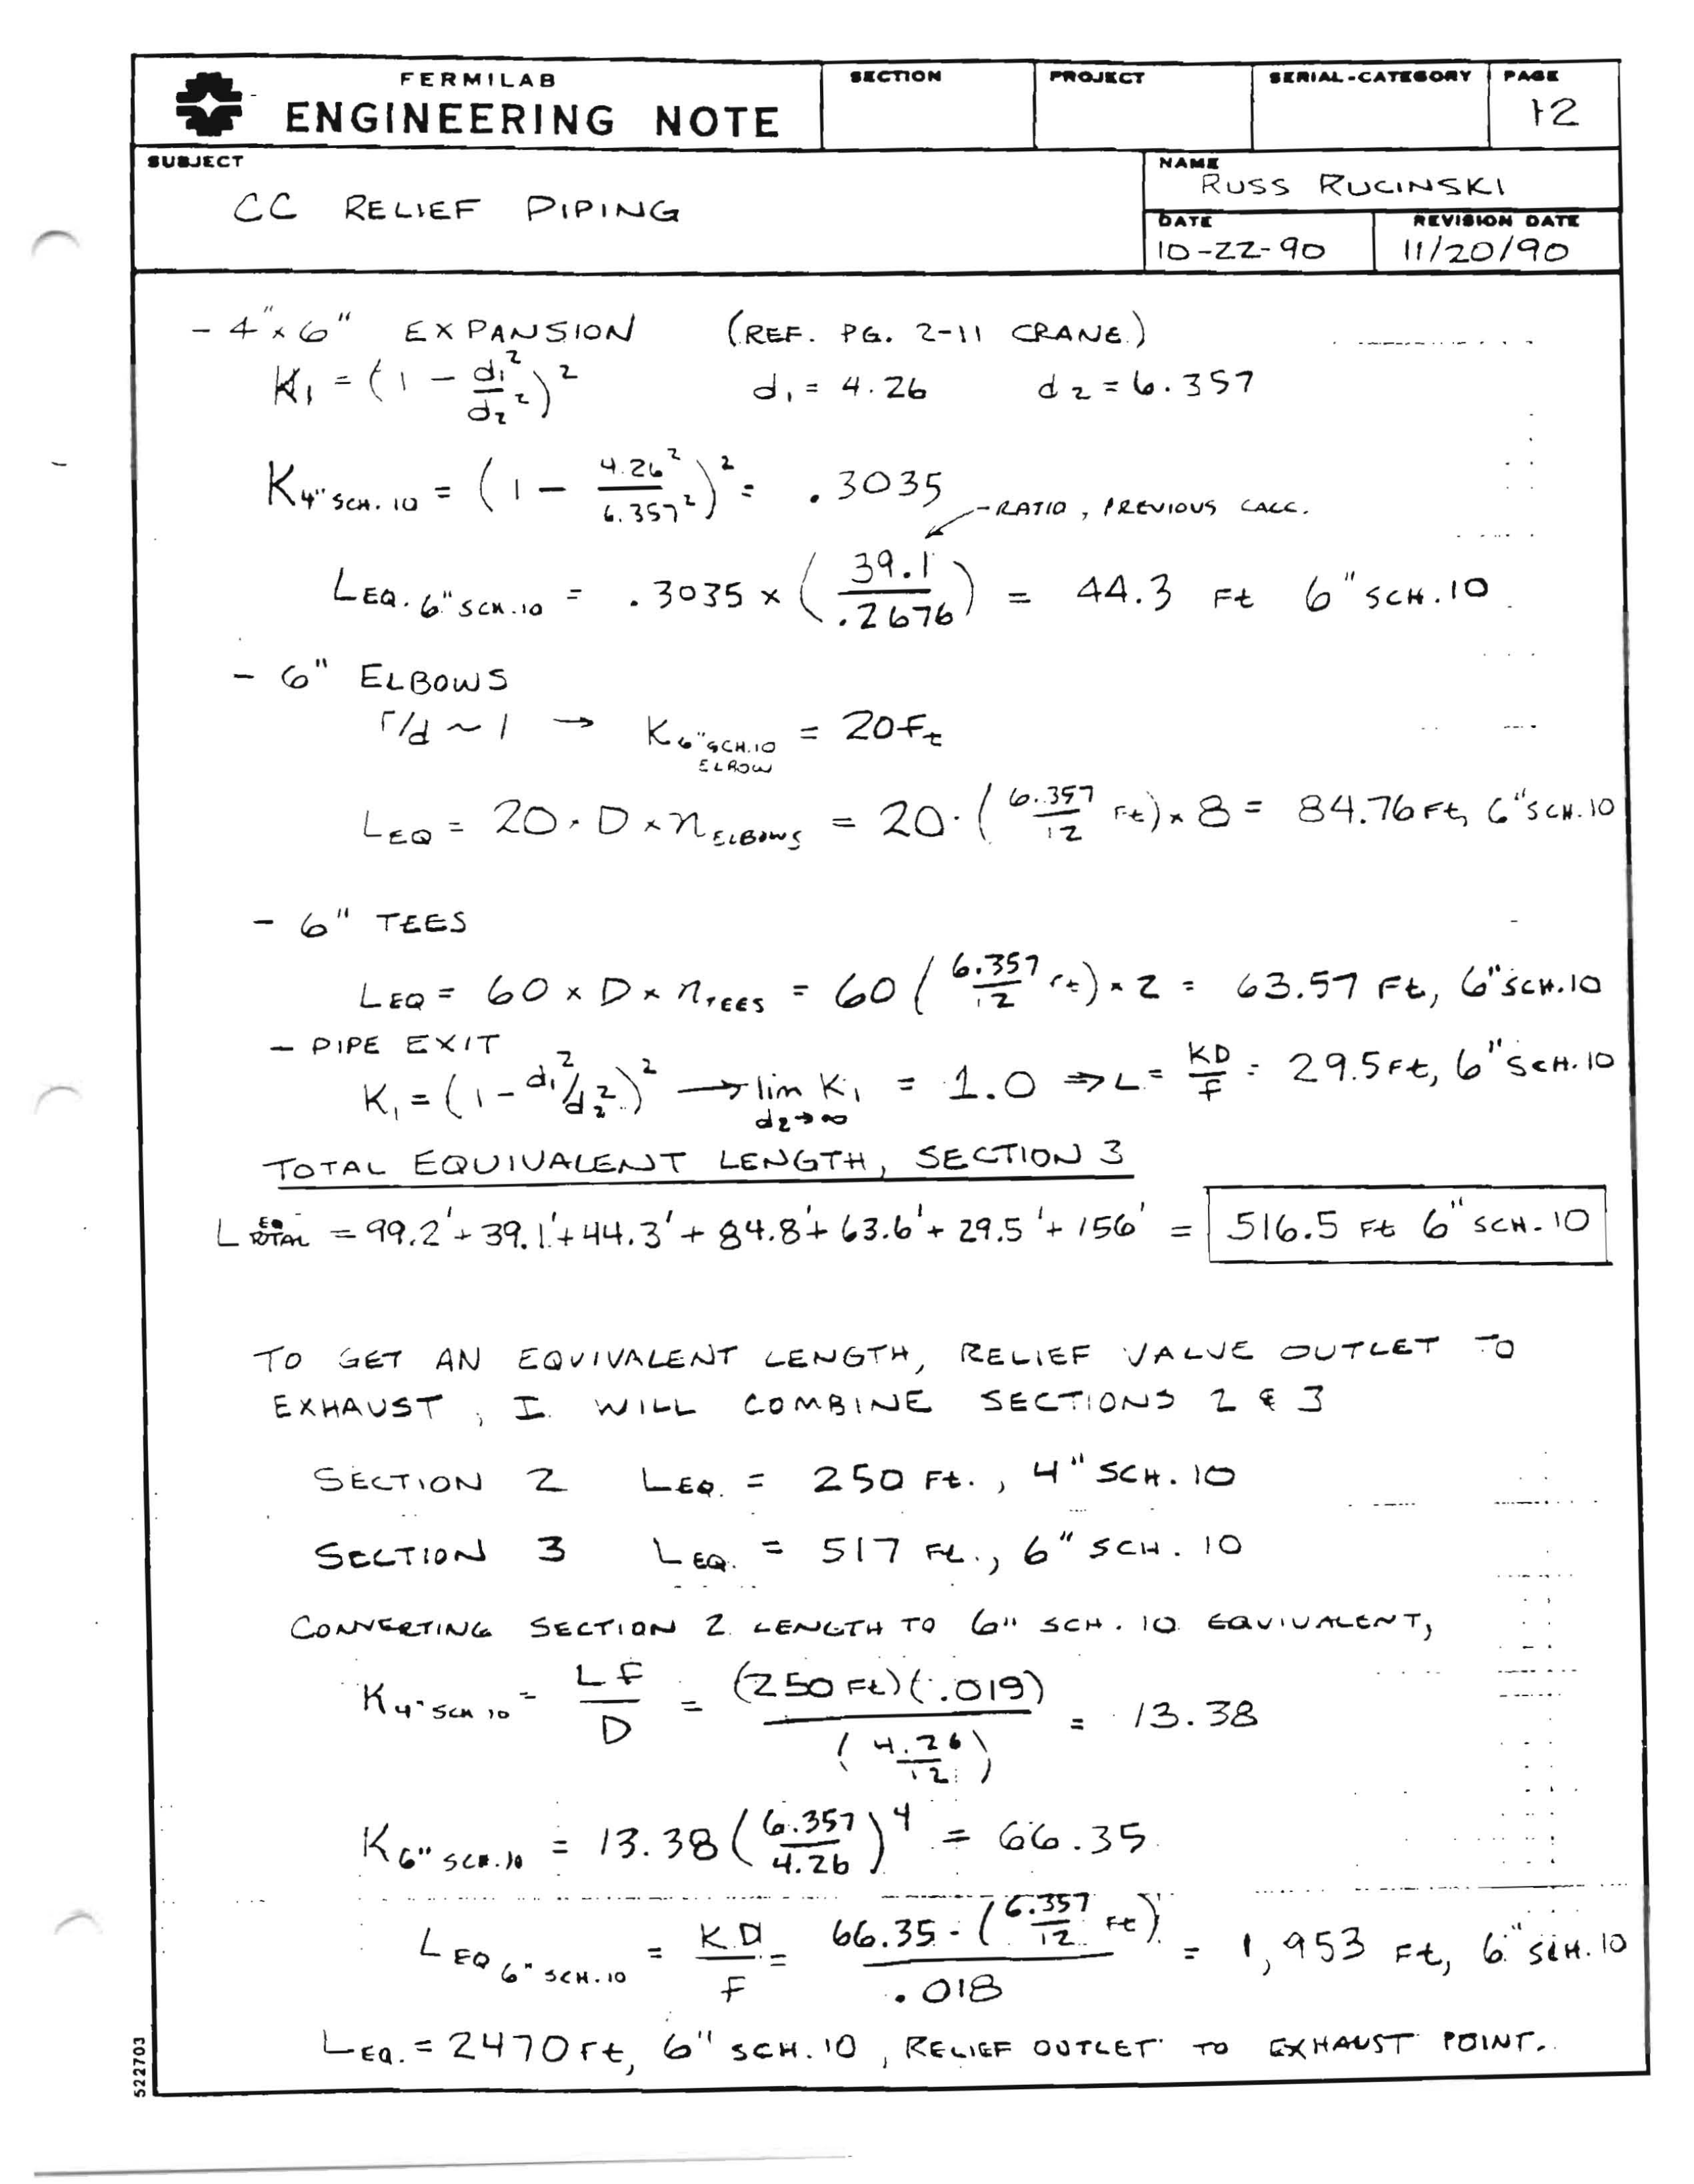 FERMILAB
ENGINEERING NOTE
SECTION
PROJECT
SERIAL-CATEGORY
PAGE
12
SUBJECT
CC RELIEF PIPING
NAME
RUSS RUCINSKI
DATE
10-22-90
REVISION DATE
11/20/90
- 4"x6" EXPANSION (REF. PG. 2-11 CRANE)
K₁ = (1 - d₁²/d₂²)² d₁ = 4.26 d₂ = 6.357
K 4" SCH. 10 = (1 - 4.26²/6.357²)² = .3035
- RATIO, PREVIOUS CALC.
L EQ. 6" SCH.10 = .3035 x (39.1/.2676) = 44.3 Ft 6" SCH.10
- 6" ELBOWS
r/d ~ 1 → K 6" SCH.10 ELBOW = 20 f t
L EQ = 20 · D x n ELBOWS = 20 · (6.357/12 Ft) x 8 = 84.76 Ft, 6" SCH.10
- 6" TEES
L EQ = 60 x D x n TEES = 60 (6.357/12 Ft) x 2 = 63.57 Ft, 6" SCH.10
- PIPE EXIT
K₁ = (1 - d₁²/d₂²)² → lim d₂→∞ K₁ = 1.0 ⇒ L = KD/f = 29.5 Ft, 6" SCH.10
TOTAL EQUIVALENT LENGTH, SECTION 3
L EQ TOTAL = 99.2' + 39.1' + 44.3' + 84.8' + 63.6' + 29.5' + 156' = 516.5 Ft 6" SCH. 10
TO GET AN EQUIVALENT LENGTH, RELIEF VALVE OUTLET TO
EXHAUST, I WILL COMBINE SECTIONS 2 & 3
SECTION 2 L EQ. = 250 Ft., 4" SCH. 10
SECTION 3 L EQ. = 517 Ft., 6" SCH. 10
CONVERTING SECTION 2 LENGTH TO 6" SCH. 10 EQUIVALENT,
K 4" SCH 10 = L f/D = (250 Ft)(.019)/(4.26/12) = 13.38
K 6" SCH.10 = 13.38 (6.357/4.26)⁴ = 66.35
L EQ 6" SCH.10 = K D/f = 66.35 · (6.357/12 Ft)/.018 = 1,953 Ft, 6" SCH.10
L EQ. = 2470 Ft, 6" SCH.10, RELIEF OUTLET TO EXHAUST POINT.
522703